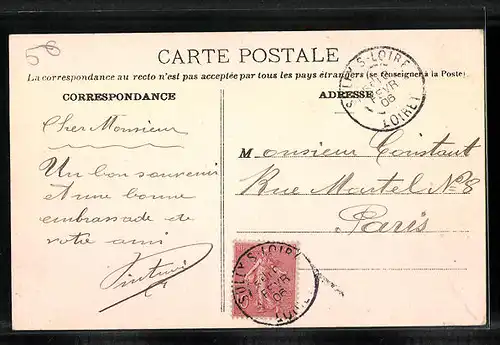 58
CARTE POSTALE
La correspondance au recto n'est pas acceptée par tous les pays étrangers (se renseigner à la Poste).
CORRESPONDANCE
Cher Monsieur
Un bon souvenir
et une bonne
embrassade de
votre ami
ADRESSE
SULLY-S-LOIRE
FEVR
06
LOIRET
Monsieur Constant
Rue Martel No 8
Paris
SULLY-S-LOIRE
FEVR
06